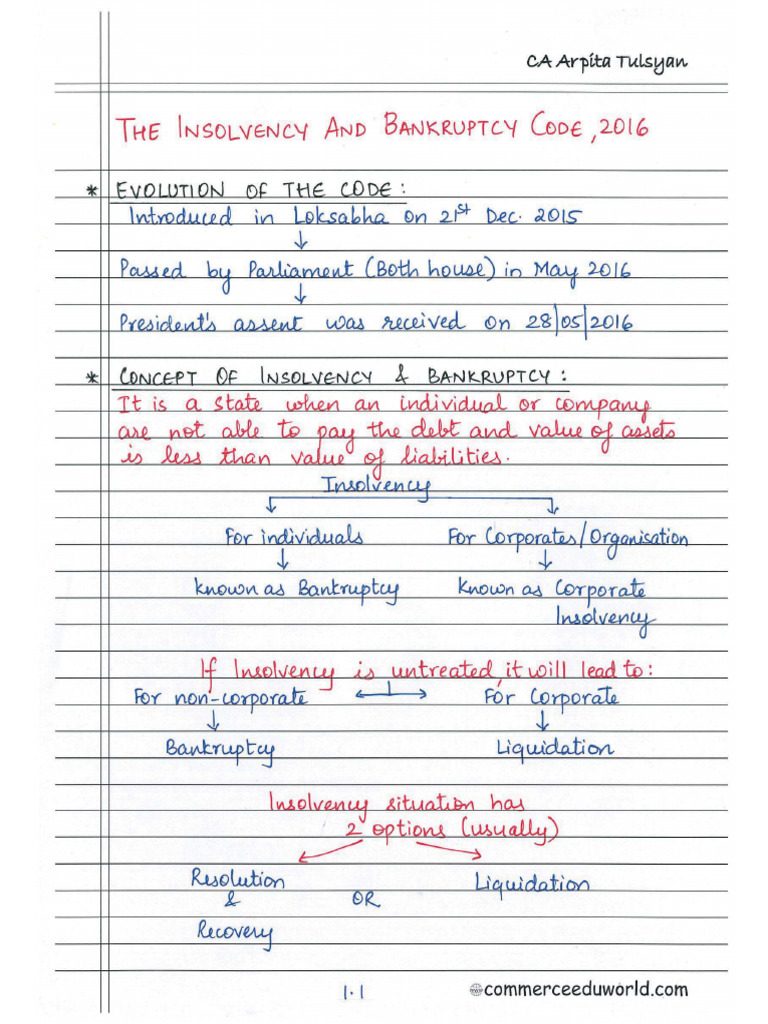 CA Arpita Tulsyan
THE INSOLVENCY AND BANKRUPTCY CODE, 2016
* EVOLUTION OF THE CODE:
Introduced in Loksabha on 21st Dec. 2015
↓
Passed by Parliament (Both house) in May 2016
↓
President's assent was received on 28/05/2016
* CONCEPT OF INSOLVENCY & BANKRUPTCY:
It is a state when an individual or company
are not able to pay the debt and value of assets
is less than value of liabilities.
Insolvency
For individuals For Corporates/Organisation
↓ ↓
known as Bankruptcy Known as Corporate
Insolvency
If Insolvency is untreated, it will lead to:
For non-corporate For Corporate
↓ ↓
Bankruptcy Liquidation
Insolvency situation has
2 options (usually)
Resolution Liquidation
& OR
Recovery
1.1 commerceeduworld.com